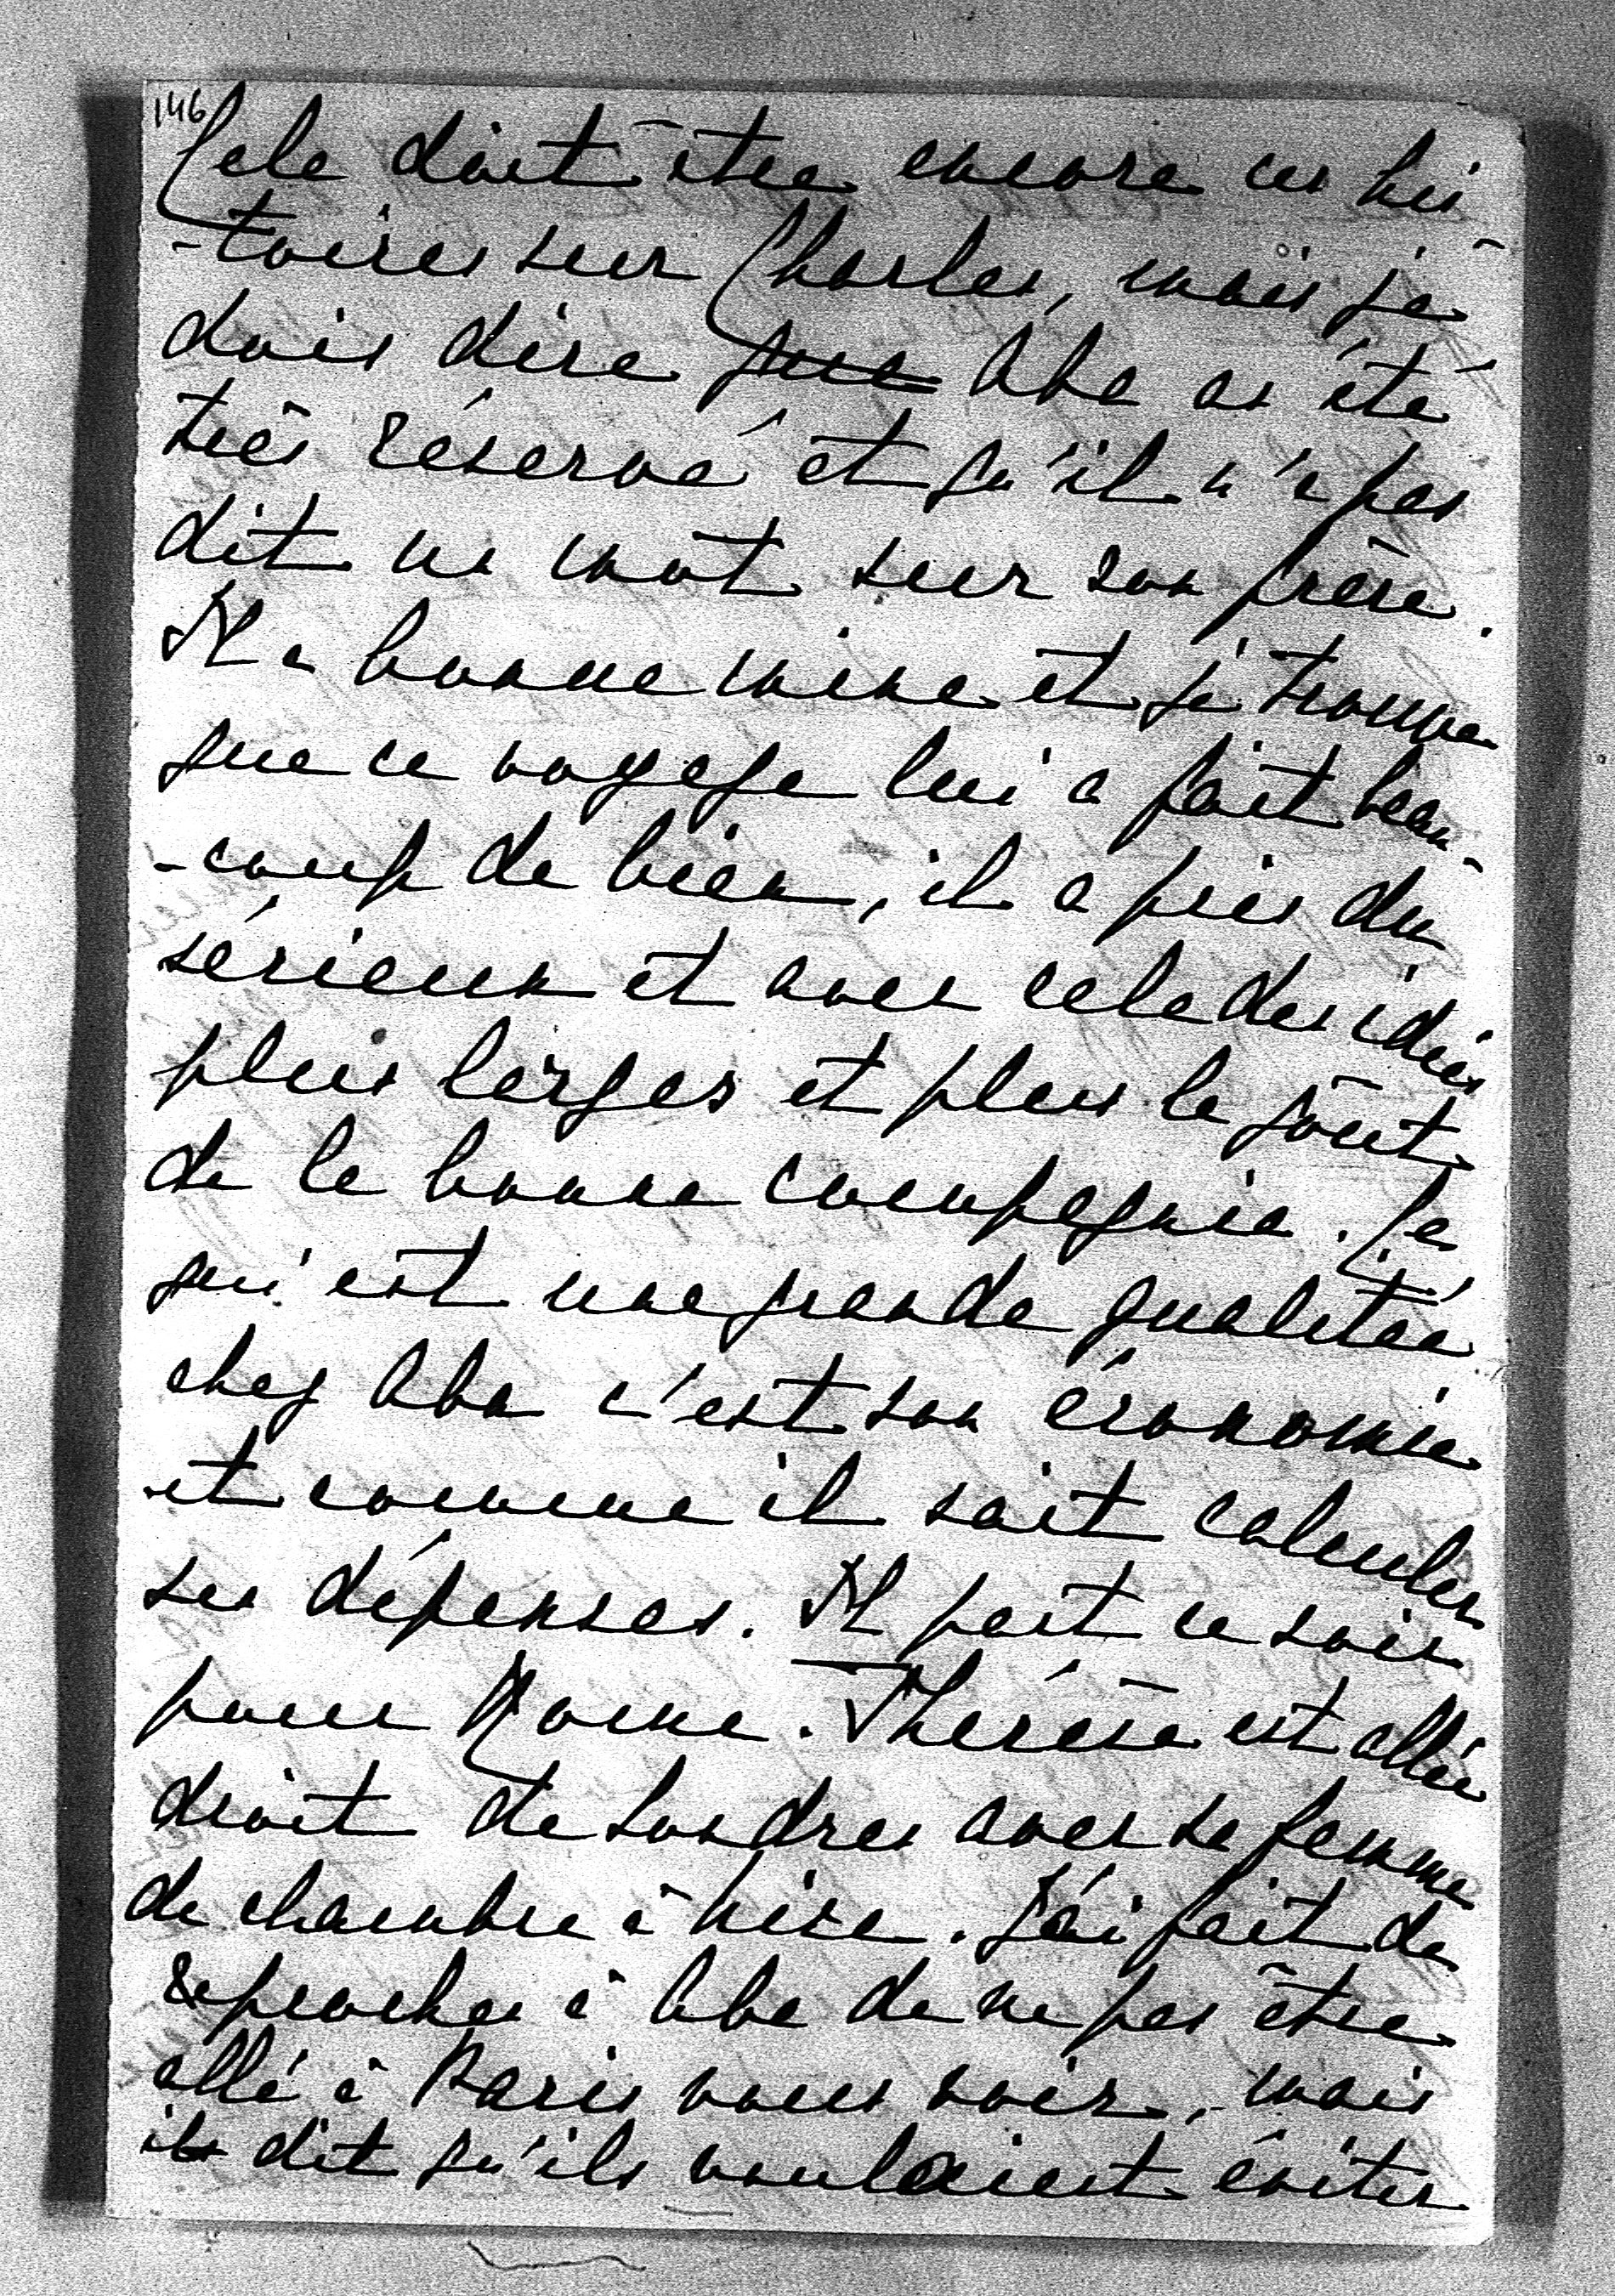 146
Cela doit être encore ces his-
-toires sur Charles, mais je
dois dire que Aba as été
très réservé et qu'il n'a pas
dit un mot sur son frère.
Il a bonne mine et je trouve
que ce voyage lui a fait beau-
-coup de bien, il a pris du
sérieux et avec cela des idées
plus larges et plus le goût
de la bonne compagnie. Ce
qui est une grande qualitée
chez Aba c'est son économie
et comme il sait calculer
ses dépenses. Il part ce soir
pour Rome. Thérèse est allée
droit de Londres avec sa femme
de chambre à Nice. J'ai fait de
reproches à Aba de ne pas être
allé à Paris vous voir, mais
ils dit qu'ils voulaient éviter